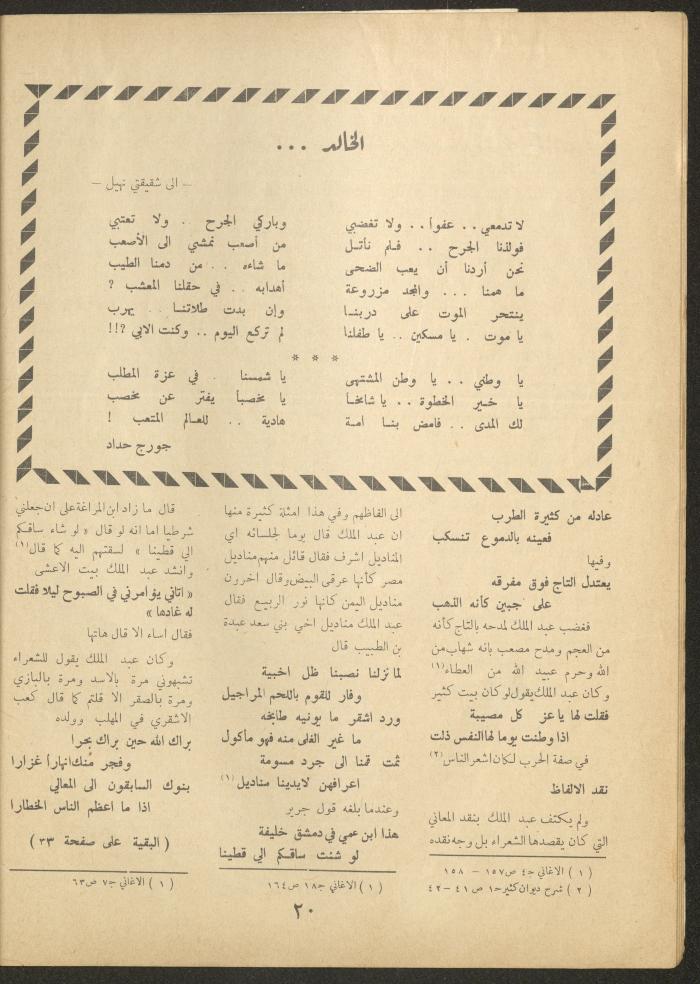 الخالد ...
– الى شقيقتي نهيل –
لا تدمعي .. عفواً .. ولا تغضبي وباركي الجرح .. ولا تعتبي
فولذنا الجرح .. فلم نأتل من أصعب نمشي الى الأصعب
نحن أردنا أن يعب الضحى ما شاءه .. من دمنا الطيب
ما همنا ... والمجد مزروعة أهدابه .. في حقلنا المعشب ?
ينتحر الموت على دربنا وإن بدت طلاتنا .. يهرب
يا موت . يا مسكين .. يا طفلنا لم تركع اليوم .. وكنت الابي ?!!
* * *
يا وطني .. يا وطن المشتهى يا شمسنا . في عزة المطلب
يا خير الخطوة .. يا شامخاً يا مخصباً يفتر عن مخصب
لك المدى .. فامض بنا امة هادية .. للعالم المتعب !
جورج حداد
عادله من كثيرة الطرب
فعينه بالدموع تنسكب
وفيها
يعتدل التاج فوق مفرقه
على جبين كأنه الذهب
فغضب عبد الملك لمدحه بالتاج كأنه
من العجم ومدح مصعب بانه شهاب من
الله وحرم عبيد الله من العطاء(١)
وكان عبد الملك يقول لو كان بيت كثير
فقلت لها ياعز كل مصيبة
اذا وطنت يوما لها النفس ذلت
في صفة الحرب لكان اشعر الناس(٢)
نقد الالفاظ
ولم يكتف عبد الملك بنقد المعاني
التي كان يقصدها الشعراء بل وجه نقده
( ١ ) الاغاني ج٤ ص١٥٧ – ١٥٨
( ٢ ) شرح ديوان كثير ج١ ص ٤١ – ٤٢
الى الفاظهم وفي هذا امثلة كثيرة منها
ان عبد الملك قال يوما لجلسائه اي
المناديل اشرف فقال قائل منهم مناديل
مصر كأنها عرقى البيض وقال اخرون
مناديل اليمن كانها نور الربيع فقال
عبد الملك مناديل اخي بني سعد عبدة
بن الطبيب قال
لما نزلنا نصبنا ظل اخبية
وفار للقوم باللحم المراجيل
ورد اشقر ما يونيه طابخه
ما غير الغلى منه فهو مأكول
ثمت قمنا الى جرد مسومة
اعرافهن لايدينا مناديل(١)
وعندما بلغه قول جرير
هذا ابن عمي في دمشق خليفة
لو شئت ساقكم الي قطينا
( ١ ) الاغاني ج١٨ ص١٦٤
قال ما زاد ابن المراغة على ان جعلني
شرطيا اما انه لو قال « لو شاء ساقكم
الي قطينا » لسقتهم اليه كما قال(١)
وانشد عبد الملك بيت الاعشى
« اتاني يؤامرني في الصبوح ليلا فقلت
له غادها »
فقال اساء الا قال هاتها
وكان عبد الملك يقول للشعراء
تشبهوني مرة بالاسد ومرة بالبازي
ومرة بالصقر الا قلتم كما قال كعب
الاشقري في المهلب وولده
براك الله حين براك بحرا
وفجر منك انهاراً غزارا
بنوك السابقون الى المعالي
اذا ما اعظم الناس الخطارا
( البقية على صفحة ٣٣ )
( ١ ) الاغاني ج٧ ص٦٣
٢٠